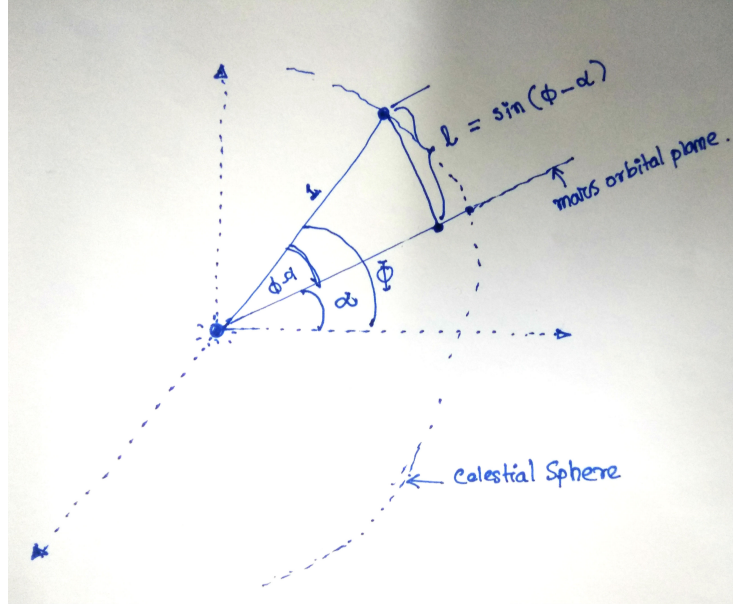 l = sin(ϕ-α)
mars orbital plane.
1
ϕ-α
α
Φ
Celestial Sphere